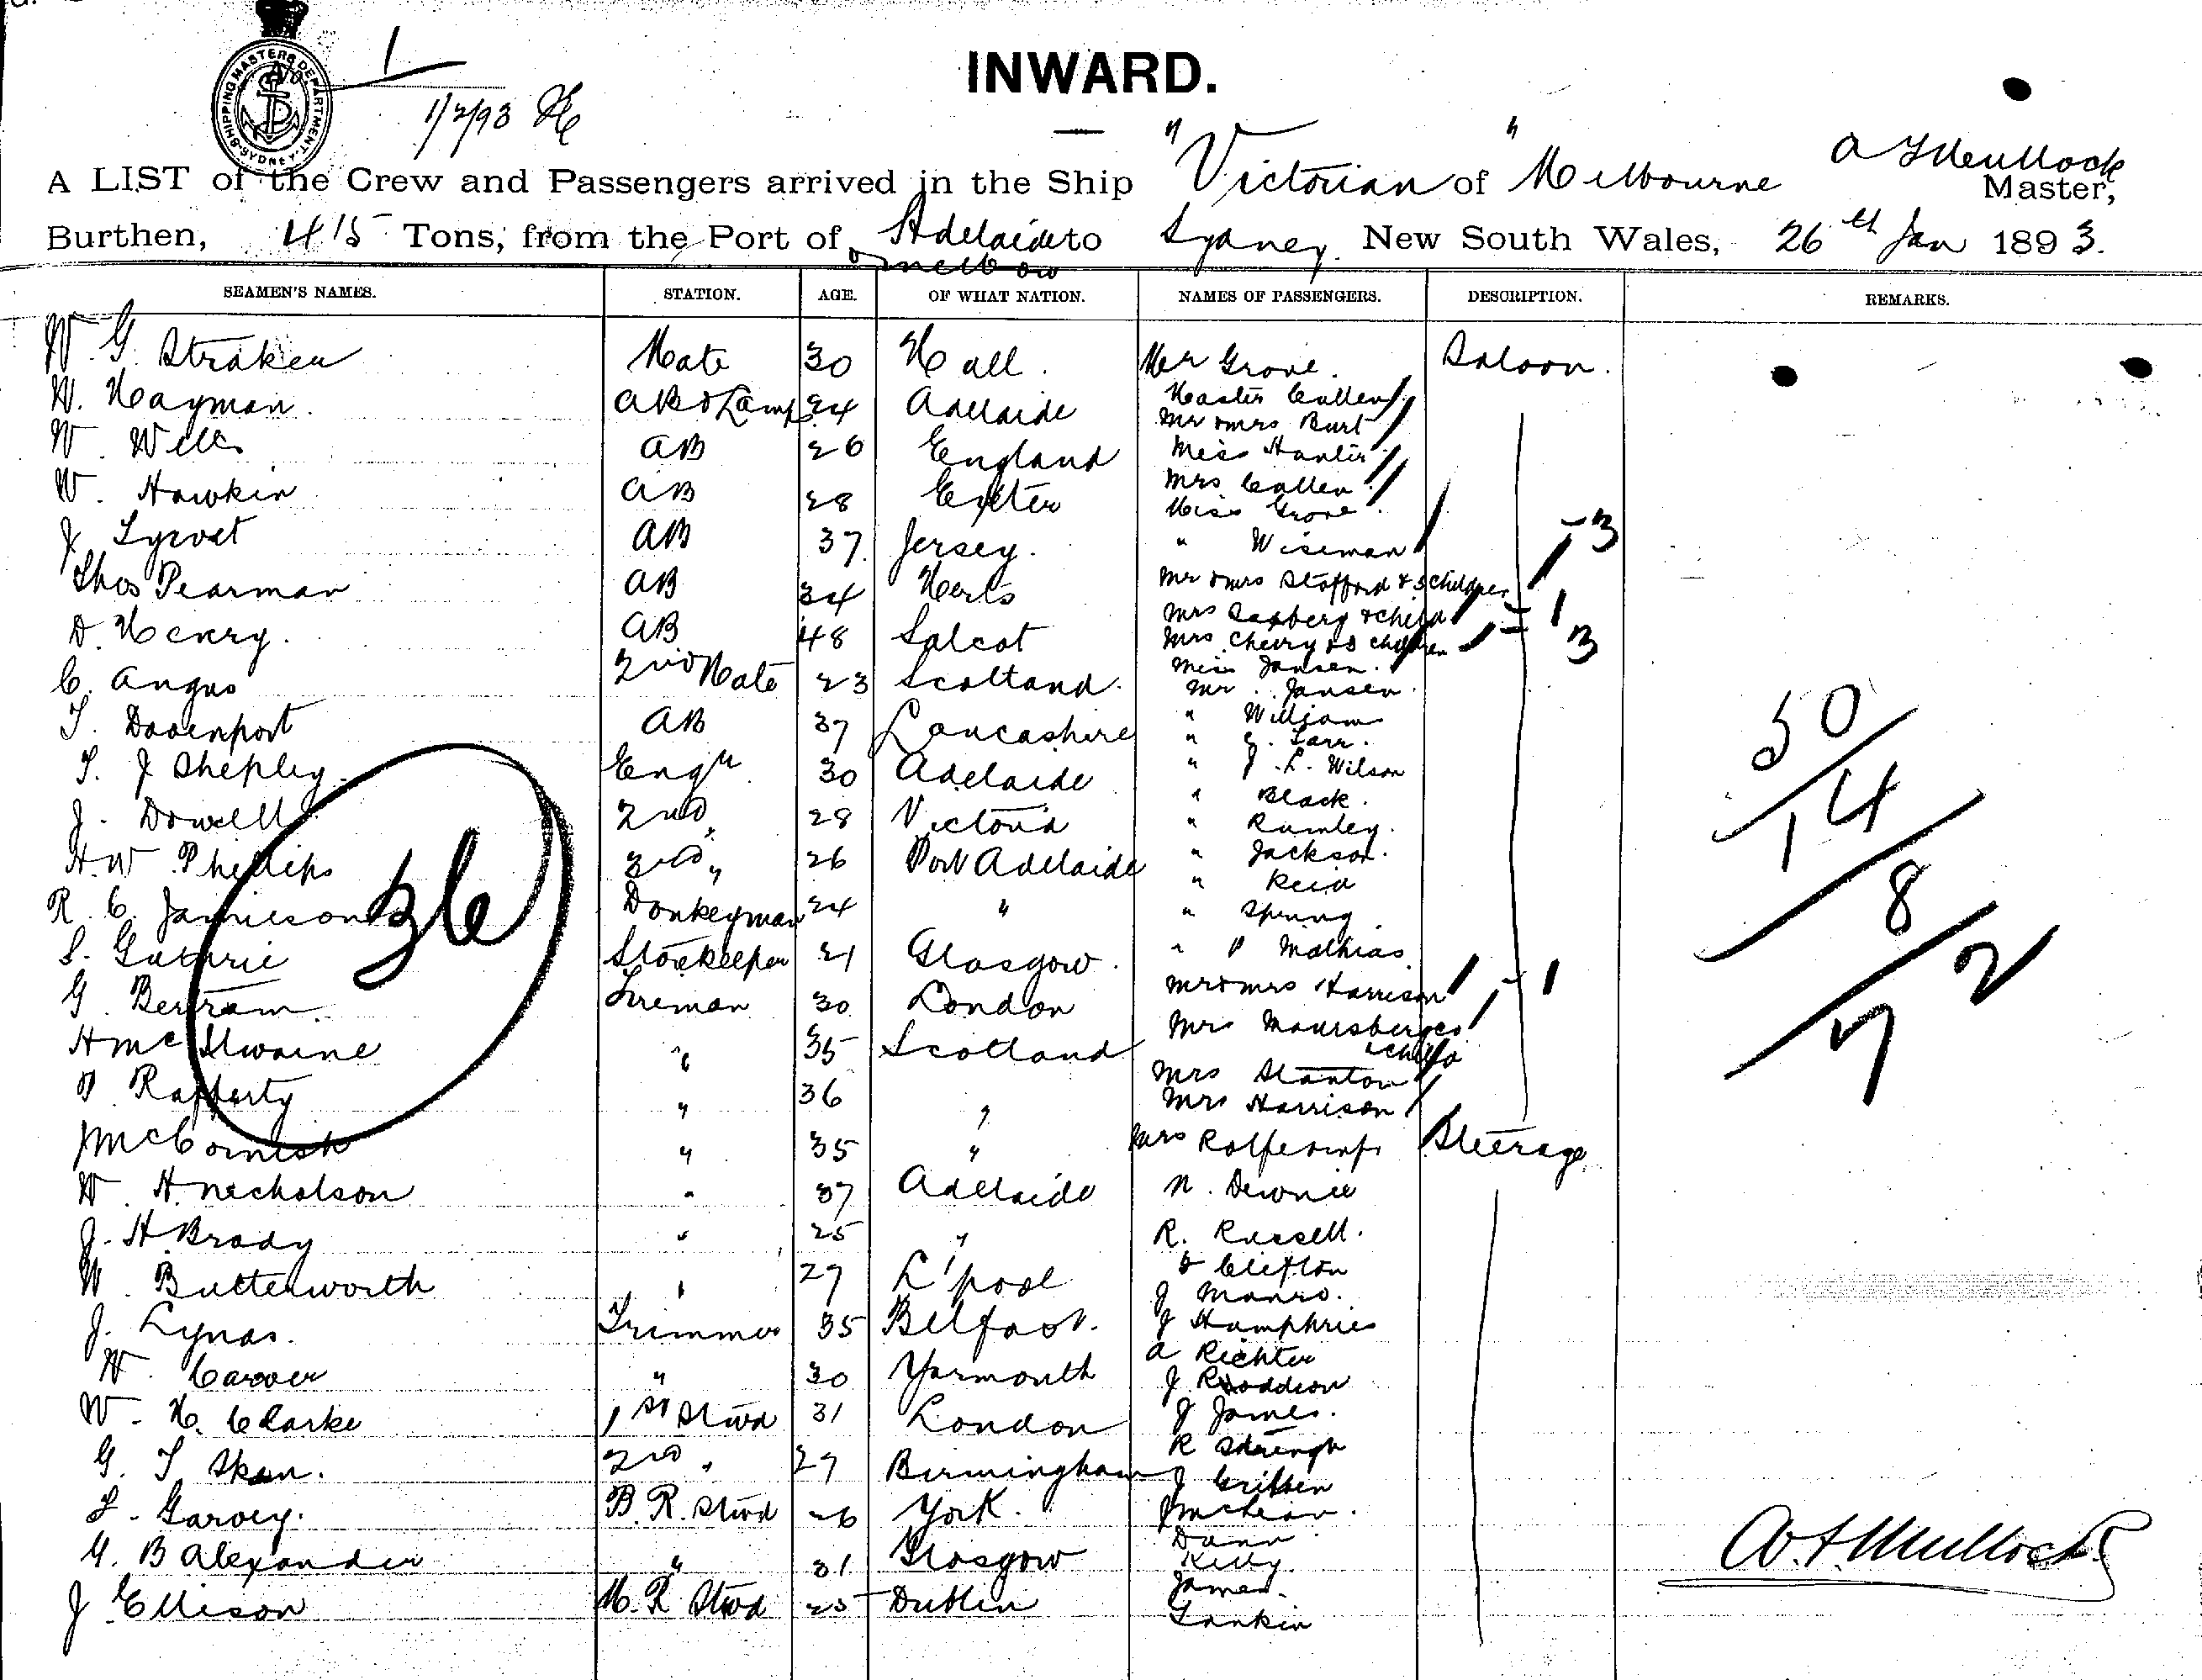 SHIPPING MASTERS DEPARTMENT. SYDNEY.
No 1
1/2/93
INWARD.
A LIST of the Crew and Passengers arrived in the Ship "Victorian" of Melbourne Master,
Burthen, 415 Tons, from the Port of Adelaide to Sydney. New South Wales, 26th Jan 1893.
SEAMEN'S NAMES. STATION. AGE. OF WHAT NATION. NAMES OF PASSENGERS. DESCRIPTION. REMARKS.
W. G. Straken Mate 30 Hull. Mr Grove. Saloon.
W. Hayman. AB & Lamp 24 Adelaide Master Cullen
Mr & Mrs Burt
W. Wells AB 26 England Miss Hunter
W. Hawkin AB 28 Exeter Mrs Cullen
Miss Grove
J. AB 37 Jersey. " Wiseman
Thos Pearman AB 34 Herts Mr & Mrs Stafford & 3 children - 3
D. Henry. AB 48 Salcot Mrs & child - 1
Mrs Cherry & 3 children - 3
C. Angus 2nd Mate 23 Scotland. Miss Jansen.
Mr. Jansen.
T. Davenport AB 37 Lancashire " William
" Carr.
T. J Shepley. Engr 30 Adelaide " J. L. Wilson
J. Dowell 2nd " 28 Victoria " Black.
" Rumley.
H. W Phillips 3rd " 26 Port Adelaide " Jackson.
" Reid
R. C. Jamieson Donkeyman 24 " " Spring
S. Guthrie Storekeeper 21 Glasgow. " P Mathias.
G. Bertram. Fireman 30 London Mr & Mrs Harrison - 1
H McIlwaine " 35 Scotland Mrs & child
P Rafferty " 36 " Mrs Stanton
Mrs Harrison
J McCornish " 35 " Mrs Rolfe & inft Steerage
W. H. Nicholson " 37 Adelaide N. Downie
J. H Brady " 25 " R. Russell.
W. Butterworth " 27 L'pool Clifton
J Manro.
J. Lynas. Trimmer 35 Belfast. J Humphries
A Richter
W. Carver " 30 Yarmouth J
W. H. Clarke 1st Stwd 31 London J James.
R
G. T. Skan. 2nd " 27 Birmingham J Gribben
L. Garvey. B. R. Stwd 26 York. McLean.
Dunn
G. B Alexander " 31 Glasgow Kelly.
James.
J Ellison M. R Stwd 25 Dublin Lankin
36
50
14
8
72
A. T. Mullock